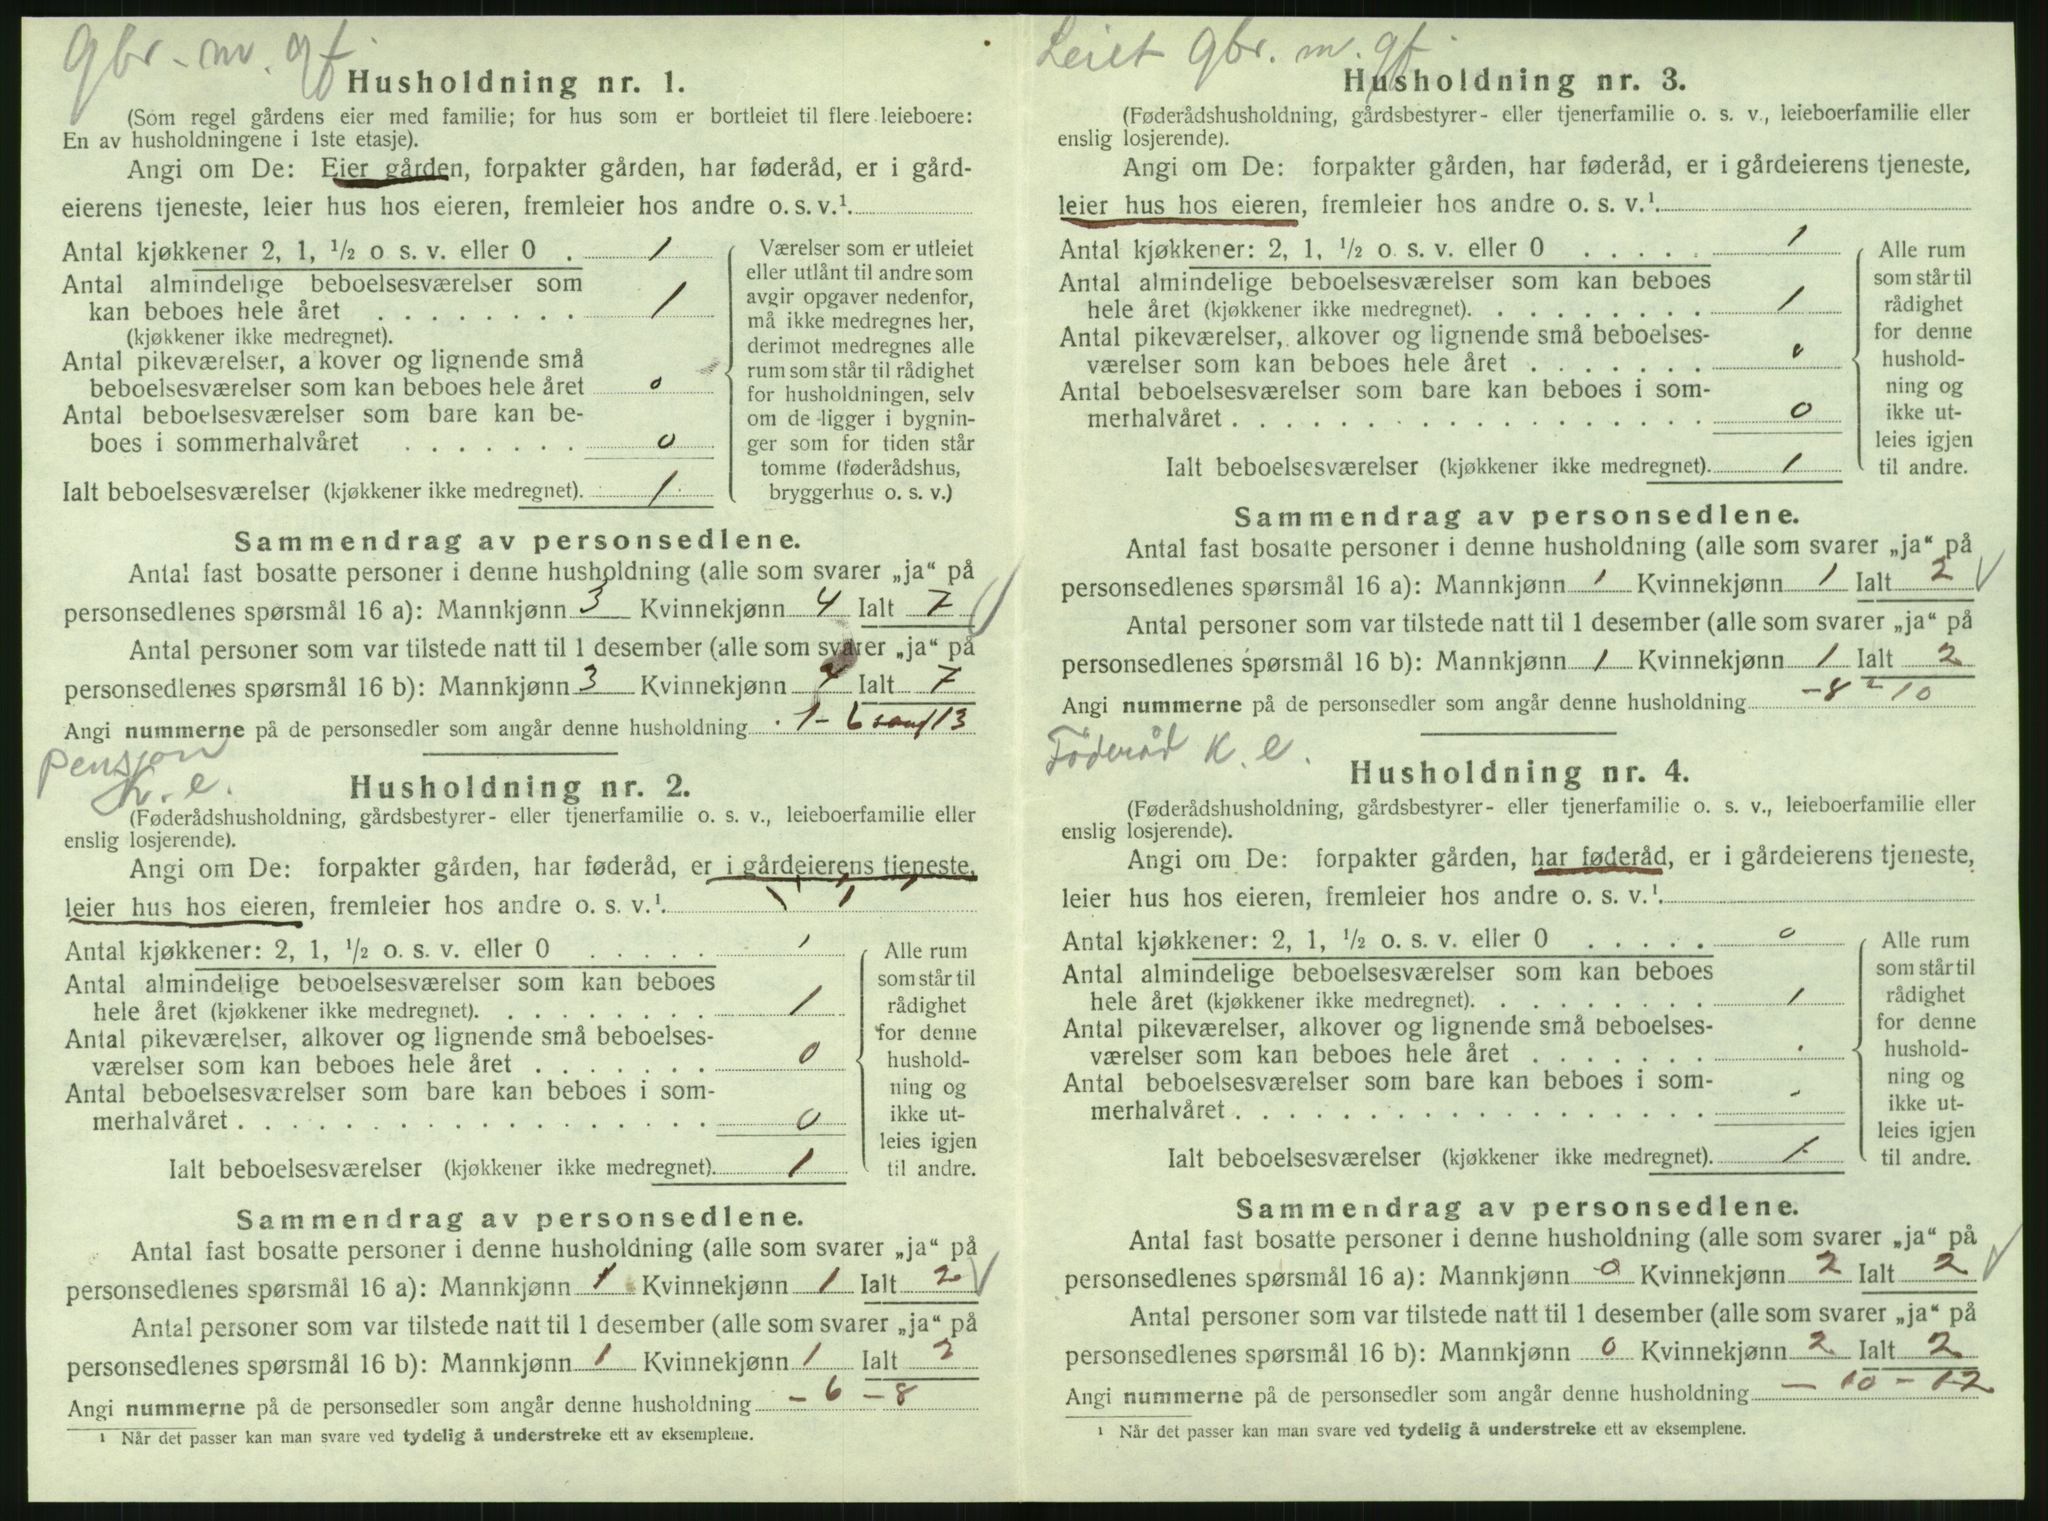 Gbr. m. gf.
Husholdning nr. 1.
(Som regel gårdens eier med familie; for hus som er bortleiet til flere leieboere:
En av husholdningene i 1ste etasje).
Angi om De: Eier gården, forpakter gården, har føderåd, er i gård-
eierens tjeneste, leier hus hos eieren, fremleier hos andre o. s. v.¹.
Antal kjøkkener 2, 1, ½ o s. v. eller 0 . 1
Antal almindelige beboelsesværelser som
kan beboes hele året . . . . . . . . 1
(kjøkkener ikke medregnet).
Antal pikeværelser, a kover og lignende små
beboelsesværelser som kan beboes hele året 0
Antal beboelsesværelser som bare kan be-
boes i sommerhalvåret . . . . . . . 0
Ialt beboelsesværelser (kjøkkener ikke medregnet). 1
Værelser som er utleiet
eller utlånt til andre som
avgir opgaver nedenfor,
må ikke medregnes her,
derimot medregnes alle
rum som står til rådighet
for husholdningen, selv
om de ligger i bygnin-
ger som for tiden står
tomme (føderådshus,
bryggerhus o. s. v.)
Sammendrag av personsedlene.
Antal fast bosatte personer i denne husholdning (alle som svarer „ja“ på
personsedlenes spørsmål 16 a): Mannkjønn 3 Kvinnekjønn 4 Ialt 7
Antal personer som var tilstede natt til 1 desember (alle som svarer „ja“ på
personsedlenes spørsmål 16 b): Mannkjønn 3 Kvinnekjønn 4 Ialt 7
Angi nummerne på de personsedler som angår denne husholdning 1 - 6 samt 13
Pensjon
k. e.
Husholdning nr. 2.
(Føderådshusholdning, gårdsbestyrer- eller tjenerfamilie o. s. v., leieboerfamilie eller
enslig losjerende).
Angi om De: forpakter gården, har føderåd, er i gårdeierens tjeneste,
leier hus hos eieren, fremleier hos andre o. s. v.¹.
Antal kjøkkener: 2, 1, ½ o. s. v. eller 0 . . . . . 1
Antal almindelige beboelsesværelser som kan beboes
hele året (kjøkkener ikke medregnet). . . . . . . . . 1
Antal pikeværelser, alkover og lignende små beboelses-
værelser som kan beboes hele året . . . . . . . 0
Antal beboelsesværelser som bare kan beboes i som-
merhalvåret . . . . . . . . . . . . . . . . . . 0
Ialt beboelsesværelser (kjøkkener ikke medregnet). 1
Alle rum
som står til
rådighet
for denne
hushold-
ning og
ikke ut-
leies igjen
til andre.
Sammendrag av personsedlene.
Antal fast bosatte personer i denne husholdning (alle som svarer „ja“ på
personsedlenes spørsmål 16 a): Mannkjønn 1 Kvinnekjønn 1 Ialt 2
Antal personer som var tilstede natt til 1 desember (alle som svarer „ja“ på
personsedlenes spørsmål 16 b): Mannkjønn 1 Kvinnekjønn 1 Ialt 2
Angi nummerne på de personsedler som angår denne husholdning - 6 - 8
¹ Når det passer kan man svare ved tydelig å understreke ett av eksemplene.
Leiet gbr. m. gf.
Husholdning nr. 3.
(Føderådshusholdning, gårdsbestyrer- eller tjenerfamilie o. s. v., leieboerfamilie eller
enslig losjerende).
Angi om De: forpakter gården, har føderåd, er i gårdeierens tjeneste,
leier hus hos eieren, fremleier hos andre o. s. v.¹.
Antal kjøkkener: 2, 1, ½ o. s. v. eller 0 . . . . . 1
Antal almindelige beboelsesværelser som kan beboes
hele året (kjøkkener ikke medregnet). . . . . . . . . 1
Antal pikeværelser, alkover og lignende små beboelses-
værelser som kan beboes hele året . . . . . . . 0
Antal beboelsesværelser som bare kan beboes i som-
merhalvåret . . . . . . . . . . . . . . . . . . 0
Ialt beboelsesværelser (kjøkkener ikke medregnet). 1
Alle rum
som står til
rådighet
for denne
hushold-
ning og
ikke ut-
leies igjen
til andre.
Sammendrag av personsedlene.
Antal fast bosatte personer i denne husholdning (alle som svarer „ja“ på
personsedlenes spørsmål 16 a): Mannkjønn 1 Kvinnekjønn 1 Ialt 2
Antal personer som var tilstede natt til 1 desember (alle som svarer „ja“ på
personsedlenes spørsmål 16 b): Mannkjønn 1 Kvinnekjønn 1 Ialt 2
Angi nummerne på de personsedler som angår denne husholdning - 8 - 10
Föderåd k. e.
Husholdning nr. 4.
(Føderådshusholdning, gårdsbestyrer- eller tjenerfamilie o. s. v., leieboerfamilie eller
enslig losjerende).
Angi om De: forpakter gården, har føderåd, er i gårdeierens tjeneste,
leier hus hos eieren, fremleier hos andre o. s. v.¹.
Antal kjøkkener: 2, 1, ½ o. s. v. eller 0 . . . . . 0
Antal almindelige beboelsesværelser som kan beboes
hele året (kjøkkener ikke medregnet). . . . . . . . . 1
Antal pikeværelser, alkover og lignende små beboelses-
værelser som kan beboes hele året . . . . . . .
Antal beboelsesværelser som bare kan beboes i som-
merhalvåret . . . . . . . . . . . . . . . . . . -
Ialt beboelsesværelser (kjøkkener ikke medregnet). 1
Alle rum
som står til
rådighet
for denne
hushold-
ning og
ikke ut-
leies igjen
til andre.
Sammendrag av personsedlene.
Antal fast bosatte personer i denne husholdning (alle som svarer „ja“ på
personsedlenes spørsmål 16 a): Mannkjønn 0 Kvinnekjønn 2 Ialt 2
Antal personer som var tilstede natt til 1 desember (alle som svarer „ja“ på
personsedlenes spørsmål 16 b): Mannkjønn 0 Kvinnekjønn 2 Ialt 2
Angi nummerne på de personsedler som angår denne husholdning - 10 - 12
¹ Når det passer kan man svare ved tydelig å understreke ett av eksemplene.